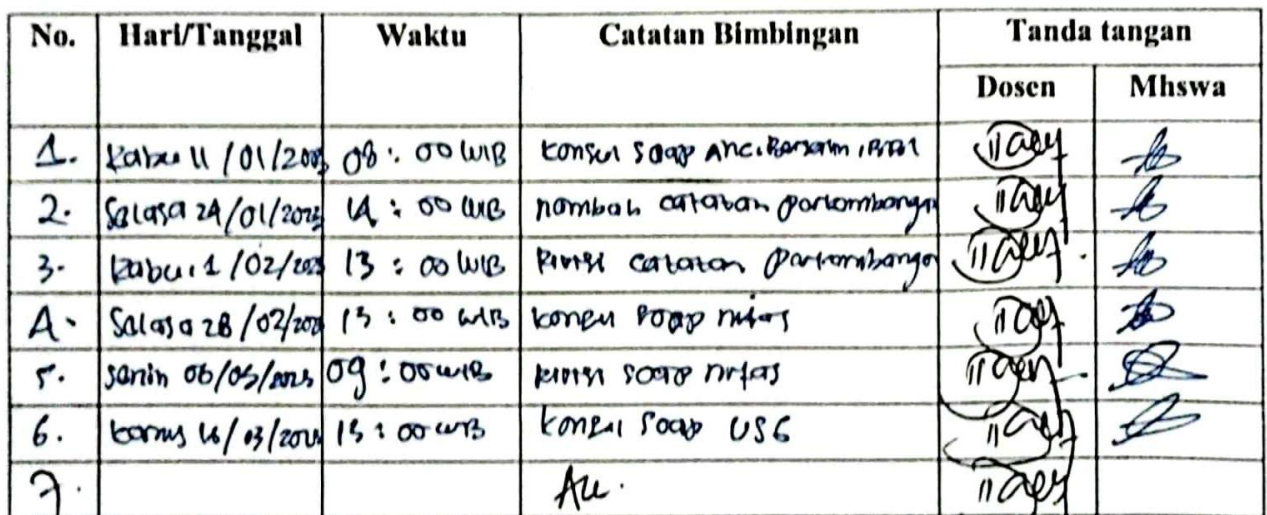 No. Hari/Tanggal Waktu Catatan Bimbingan Tanda tangan
Dosen Mhswa
1. Rabu 11/01/2023 08:00 WIB Konsul Soap ANC, Bersalin, BBL
2. Selasa 24/01/2023 14:00 WIB nambah catatan perkembangan
3. Rabu, 1/02/2023 13:00 WIB Revisi catatan perkembangan
4. Selasa 28/02/2023 13:00 WIB Konsul Soap nifas
5. Senin 06/03/2023 09:00 WIB Revisi Soap nifas
6. Kamis 16/03/2023 13:00 WIB Konsul Soap USG
7. Acc.